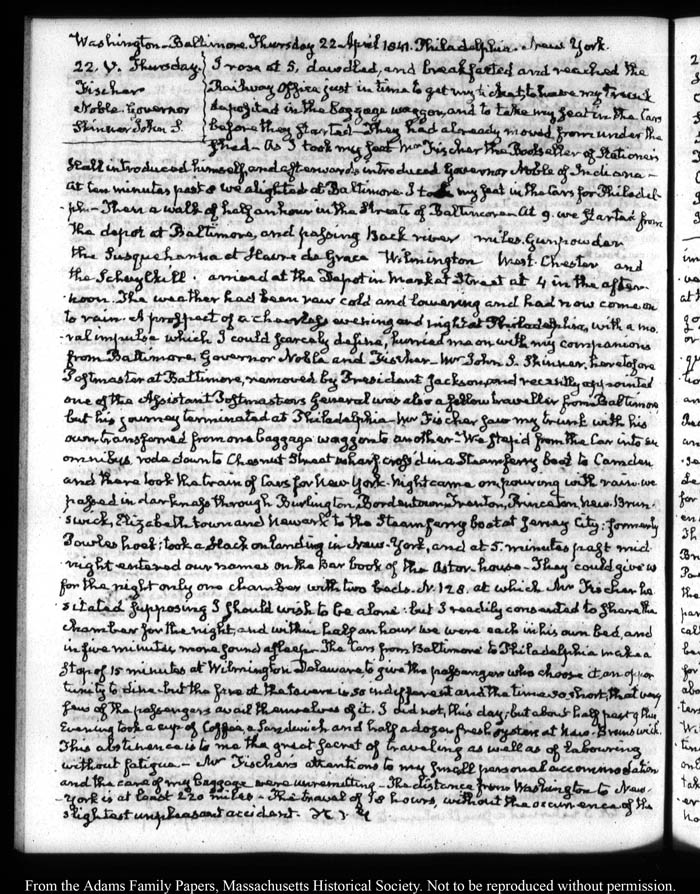 Washington-Baltimore. Thursday 22. April 1841. Philadelphia. New York.
22. V. Thursday.
Fischer
Noble. Governor
Skinner John S.
I rose at 5, dawdled, and breakfasted and reached the
Railway Office just in time to get my ticket, to have my trunk
deposited in the Baggage waggon, and to take my seat in the Cars
before they started. They had already moved from under the
shed. As I took my seat Mr Fischer the Bookseller & Stationer
Hall introduced himself, and afterwards introduced Governor Noble of Indiana.
At ten minutes past 8 we alighted at Baltimore. I took my seat in the Cars for Philadel-
phi- Then a walk of half an hour in the Streets of Baltimore. At 9. we started from
the depot at Baltimore, and passing Back river miles. Gunpowder
the Susquehanna at Havre de Grace Wilmington West-Chester and
the Schuylkill. arrived at the Depot in Market Street at 4 in the after-
noon. The weather had been raw cold and lowering and had now come on
to rain. A prospect of a cheerless evening and night at Philadelphia, with a mo-
ral impulse which I could scarcely define, hurried me on with my companions
from Baltimore, Governor Noble and Fischer. Mr John S. Skinner, heretofore
Postmaster at Baltimore, removed by President Jackson, and recently appointed
one of the Assistant Postmasters General was also a fellow traveller from Baltimore
but his journey terminated at Philadelphia. Mr Fischer saw my trunk with his
own, transferred from one baggage waggon to another. We step'd from the Car into an
omnibus, rode down to Chesnut Street wharf, cross'd in a Steam ferry boat to Camden
and there took the train of Cars for New York. Night came on pouring with rain. we
passed in darkness through Burlington, Bordentown, Trenton, Princeton New Brun-
swick, Elizabethtown and Newark to the Steam ferry boat at Jersey City: formerly
Powles hook; took a Hack on landing in New-York, and at 5. minutes past mid-
night entered our names on the Bar book of the Astor-house. They could give us
for the night only one chamber with two beds. N. 128. at which Mr Fischer he-
sitated supposing I should wish to be alone: but I readily consented to share the
chamber for the night, and within half an hour we were each in his own bed, and
in five minutes more sound asleep. The Cars from Baltimore to Philadelphia make a
stop of 15 minutes at Wilmington Delaware, to give the passengers who choose it an oppor-
tunity to dine. but the fare at the tavern is so indifferent and the time so short, that very
few of the passengers avail themselves of it. I did not, this day; but about half past 9 this
Evening took a cup of Coffee, a Sandwich and half a dozen fresh oysters at New-Brunswick.
This abstinence is to me the great secret of traveling as well as of labouring
without fatigue. Mr Fischer's attentions to my small personal accommodation
and the care of my baggage were unremitting. The distance from Washington to New-
York is at least 220 miles. The travel of 18 hours, without the occurrence of the
slightest unpleasant accident.
From the Adams Family Papers, Massachusetts Historical Society. Not to be reproduced without permission.